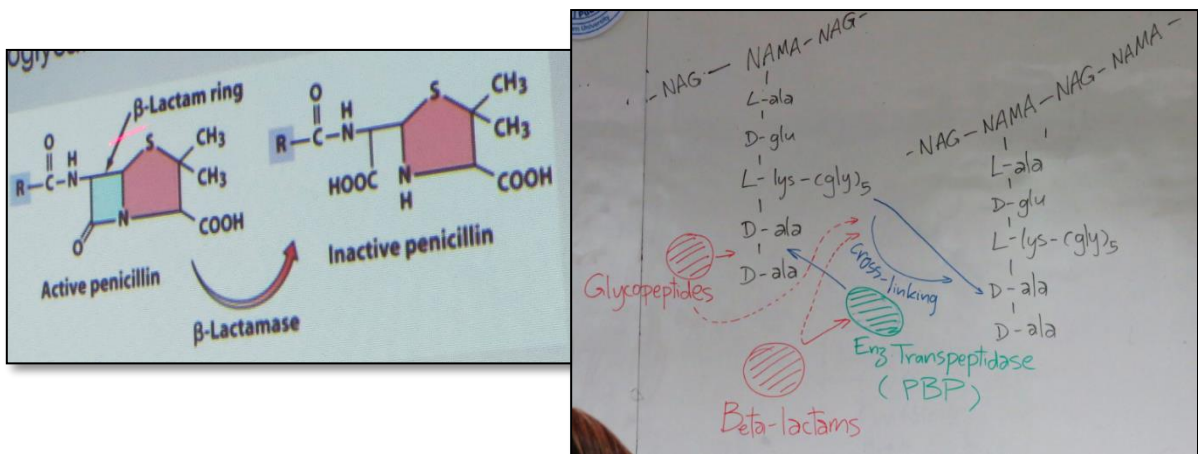 β-Lactam ring
O
H
R–C–N
S
CH3
CH3
N
O
COOH
Active penicillin
β-Lactamase
O
H
R–C–N
S
CH3
CH3
HOOC
N
H
COOH
Inactive penicillin
University
-NAG — NAMA-NAG-
L-ala
D-glu
L-lys-(gly)5
D-ala
D-ala
-NAG-NAMA-NAG-NAMA-
L-ala
D-glu
L-lys-(gly)5
D-ala
D-ala
Glycopeptides
cross-linking
Enz Transpeptidase
(PBP)
Beta-lactams